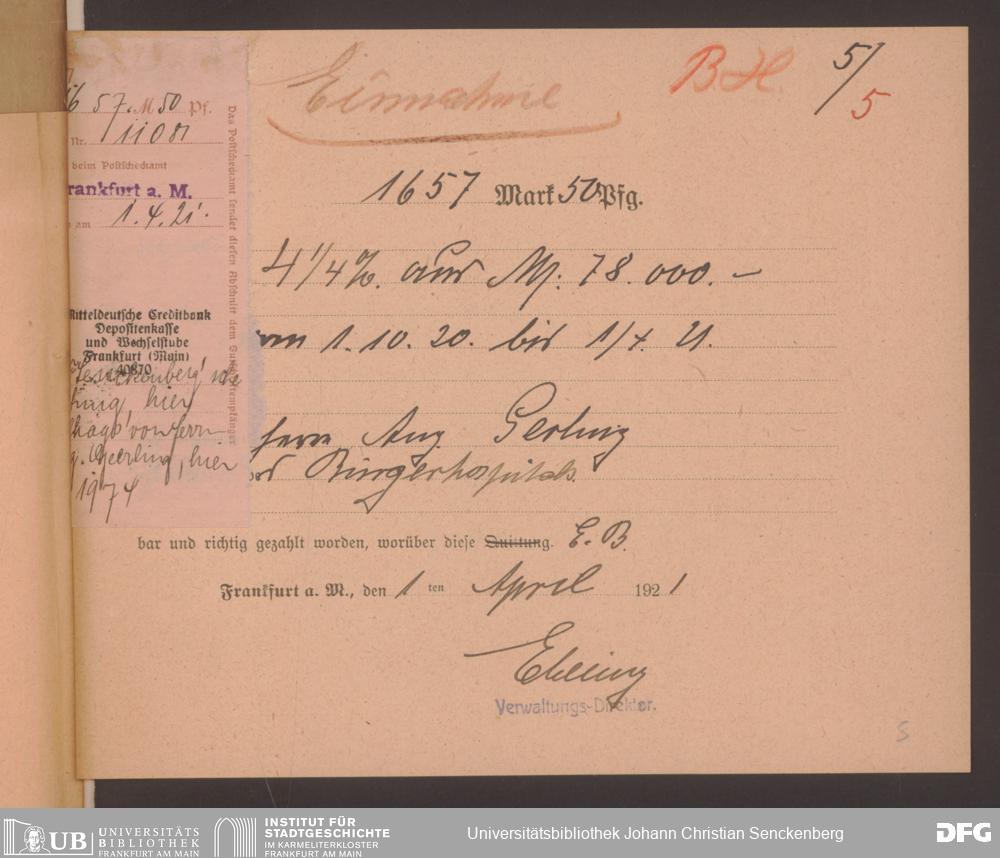 Einnahme
B.H. 5/5
57. M 50 Pf.
Nr. 11081
beim Postscheckamt
rankfurt a. M.
am 1.4.21.
Das Postscheckamt sendet diesen Abschnitt dem
Mitteldeutsche Creditbank
Depositenkasse
und Wechselstube
Frankfurt (Main)
40870
hier
von Herrn
Geerling, hier
1974
1657 Mark 50 Pfg.
4 1/4 %. aus M. 78.000.—
1. 10. 20. bis 1/4. 21.
Herrn Aug. Gerling
Bürgerhospitals.
bar und richtig gezahlt worden, worüber diese Quittung. E. B.
Frankfurt a. M., den 1 ten April 1921
Verwaltungs-Direktor.
5
UB UNIVERSITÄTS
BIBLIOTHEK
FRANKFURT AM MAIN
INSTITUT FÜR
STADTGESCHICHTE
IM KARMELITERKLOSTER
FRANKFURT AM MAIN
Universitätsbibliothek Johann Christian Senckenberg
DFG